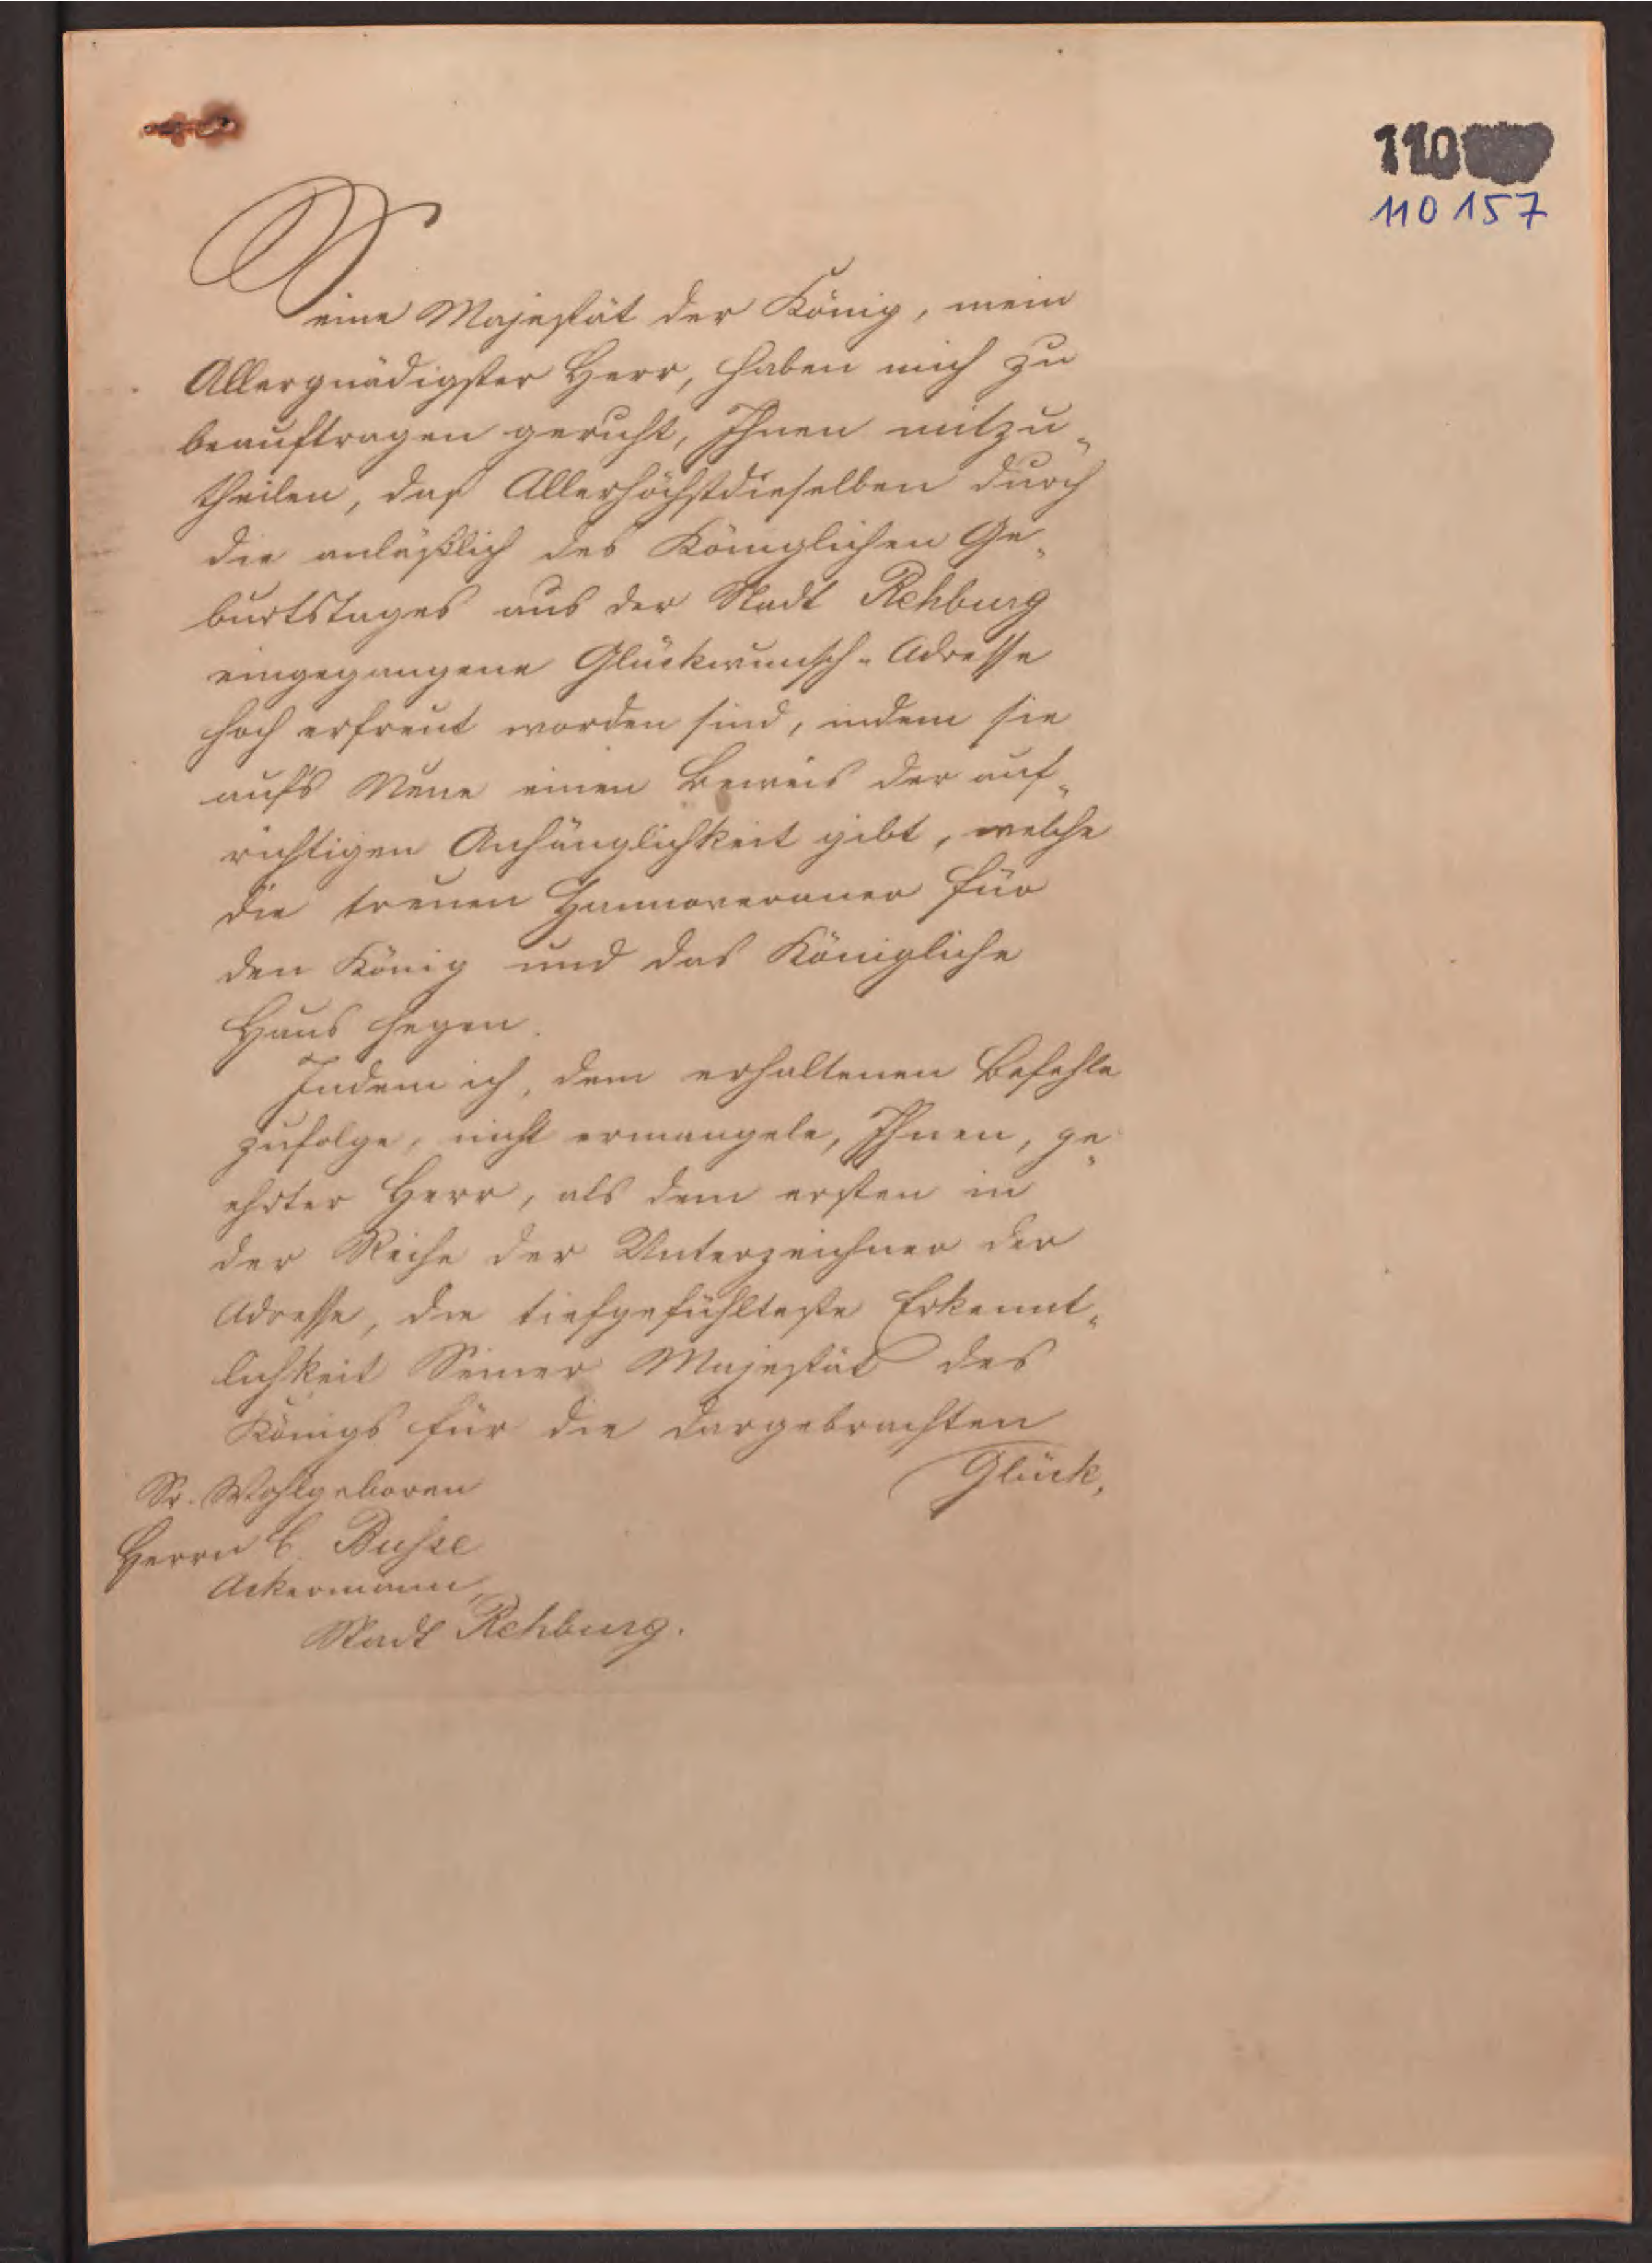 110
110 157
Seine Majestät der König, mein
Allergnädigster Herr, haben mich zu
beauftragen geruht, Ihnen mitzu-
theilen, daß Allerhöchstdieselben durch
die anläßlich des Königlichen Ge-
burtstages aus der Stadt Rehburg
eingegangene Glückwunsch-Adresse
hoch erfreut worden sind, indem sie
aufs Neue einen Beweis der auf-
richtigen Anhänglichkeit gibt, welche
die treuen Hannoveraner für
den König und das Königliche
Haus hegen.
Indem ich, dem erhaltenen Befehle
zufolge, nicht ermangele, Ihnen, ge-
ehrter Herr, als dem ersten in
der Reihe der Unterzeichner der
Adresse, die tiefgefühlteste Erkennt-
lichkeit Seiner Majestät des
Königs für die dargebrachten
Glück,
Sr. Wohlgeboren
Herrn C. Busse
Ackermann,
Stadt Rehburg.